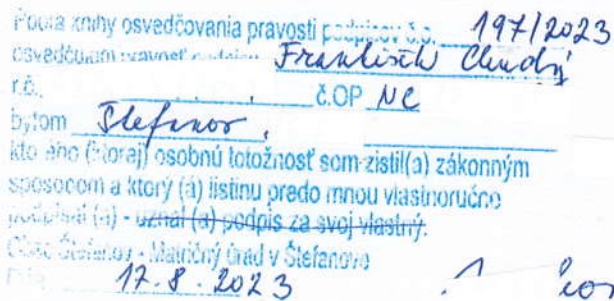 Podľa knihy osvedčovania pravosti podpisov č.o. 197/2023
osvedčujem pravosť podpisu František Chudý
r.č. č.OP NC
bytom Štefanov,
kto ého (ktoraj) osobnú totožnosť som zistil(a) zákonným
spôsobom a ktorý (á) listinu predo mnou vlastnoručne
podpísal (a) - uznal (a) podpis za svoj vlastný.
Obec Štefanov - Matričný úrad v Štefanove
17.8.2023